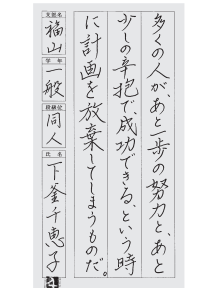 多くの人が、あと一歩の努力と、あと
少しの辛抱で、成功できる、という時
に計画を放棄してしまうものだ。
支部名
福山
学年
一般
段級位
同人
氏名
下釜千恵子